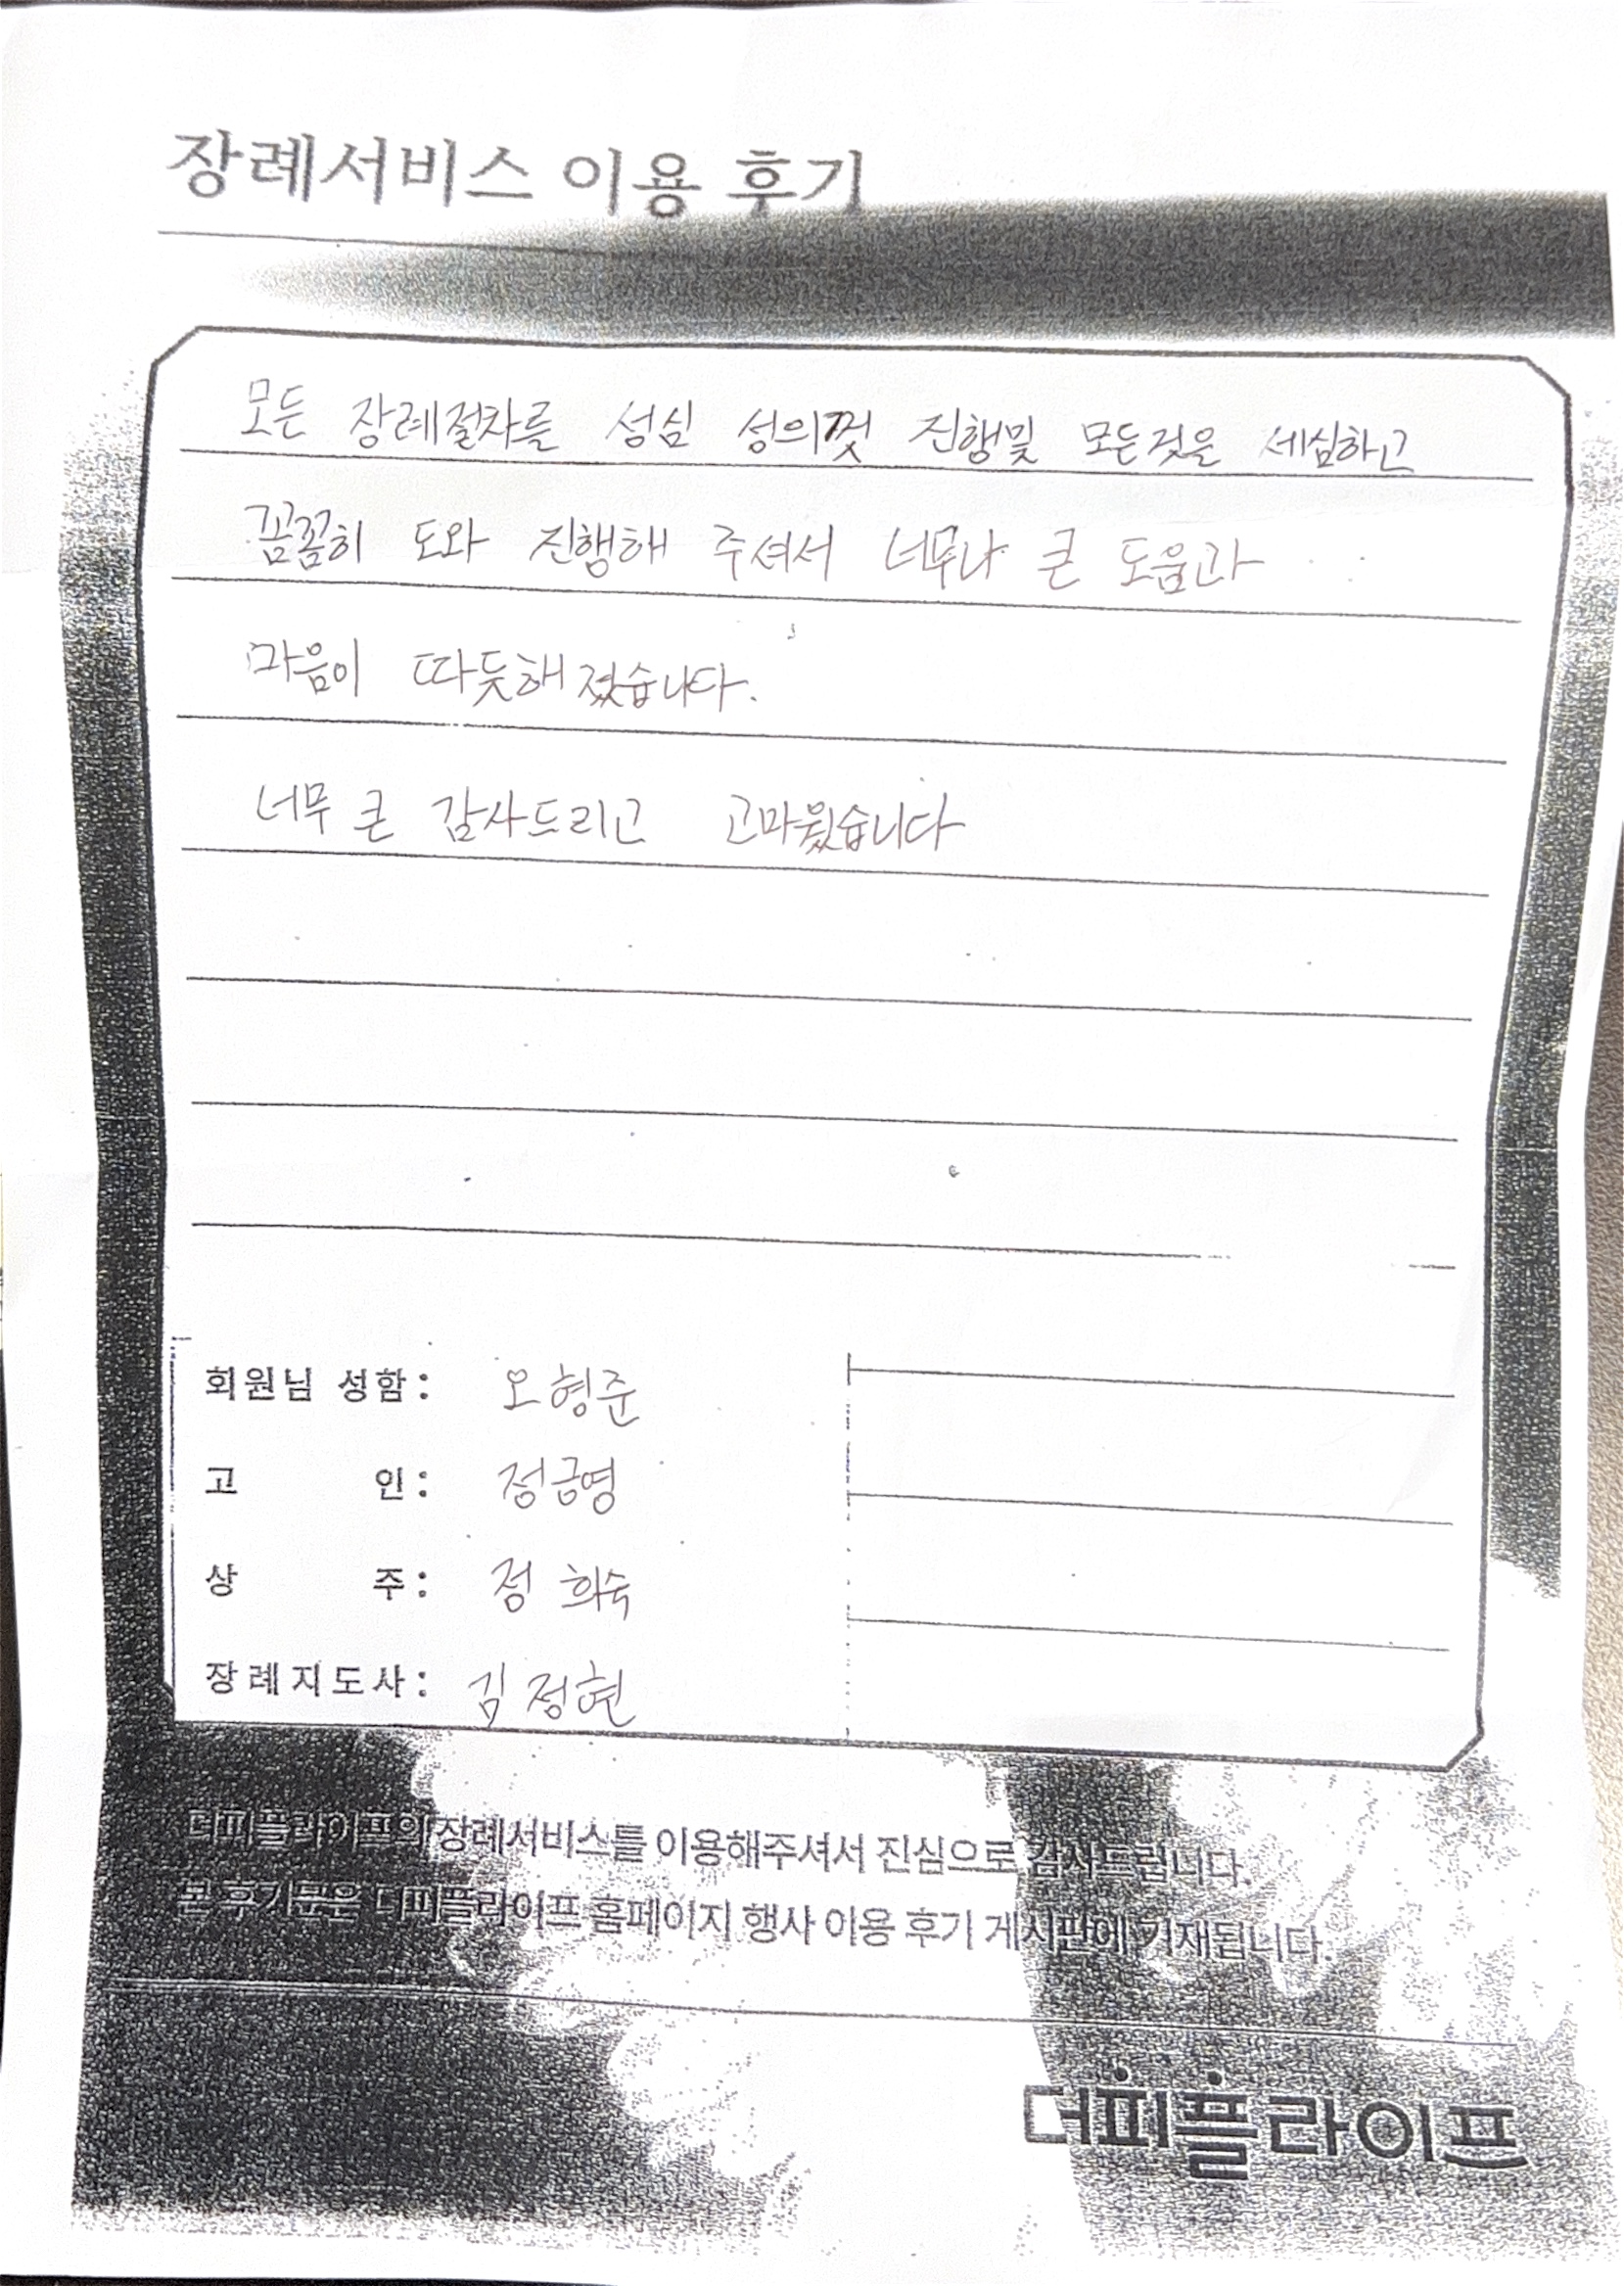 장례서비스 이용 후기
모든 장례절차를 성심 성의껏 진행및 모든것을 세심하고
꼼꼼히 도와 진행해 주셔서 너무나 큰 도움과
마음이 따듯해졌습니다.
너무 큰 감사드리고 고마웠습니다
회원님 성함: 오형준
고 인: 정금영
상 주: 정 희숙
장례지도사: 김정현
더피플라이프의 장례서비스를 이용해주셔서 진심으로 감사드립니다.
본 후기문은 더피플라이프 홈페이지 행사 이용 후기 게시판에 기재됩니다.
더피플라이프